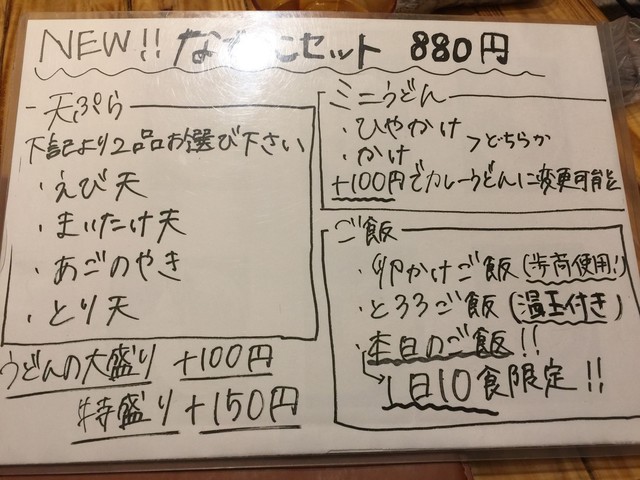 NEW!! セット 880円
天ぷら
下記より2品お選び下さい
・えび天
・まいたけ天
・あごのやき
・とり天
うどんの大盛り +100円
特盛り +150円
ミニうどん
・ひやかけ
・かけ
>どちらか
+100円でカレーうどんに変更可能
ご飯
・卵かけご飯(歩荷使用!)
・とろろご飯(温玉付き)
・本日のご飯!!
→1日10食限定!!